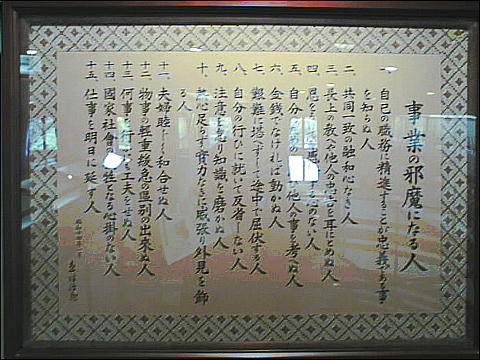 事業の邪魔になる人
一、自己の職務に精進することが忠義である事
を知らぬ人
二、共同一致の融和心なき人
三、長上の教へや他人の忠言を耳にとめぬ人
四、恩を
心のない人
五、自分
他人の事を考へぬ人
六、金銭でなければ動かぬ人
七、艱難に堪へずして途中で屈伏する人
八、自分の行ひに就いて反省しない人
九、注意を怠り知識を磨かぬ人
十、熱心足らず實力なきに威張り外見を飾
る人
十一、夫婦睦
和合せぬ人
十二、物事の軽重緩急の區別の出來ぬ人
十三、何事
行
工夫をせぬ人
十四、國家社會
犠牲となる心掛のない人
十五、仕事を明日に延す人